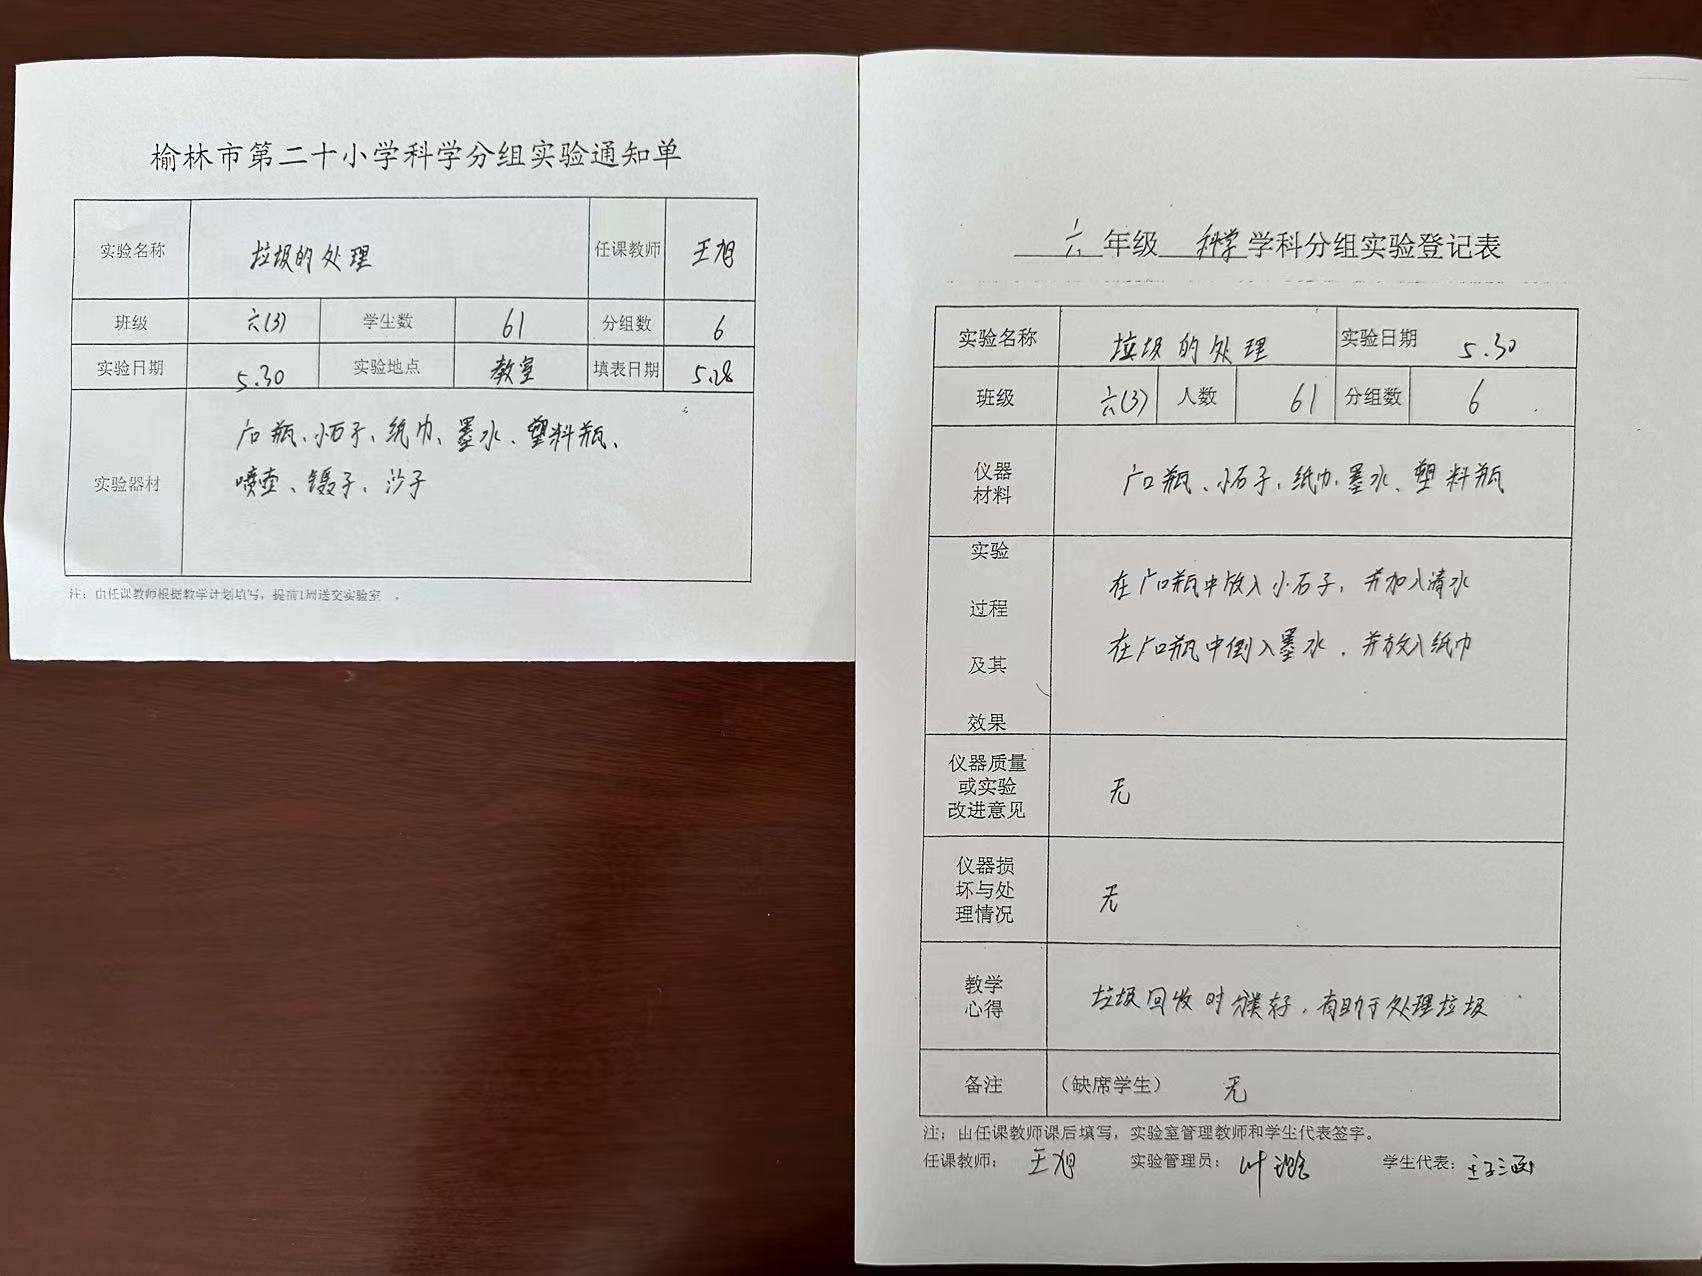 榆林市第二十小学科学分组实验通知单
实验名称 垃圾的处理 任课教师 王旭
班级 六(3) 学生数 61 分组数 6
实验日期 5.30 实验地点 教室 填表日期 5.28
实验器材
广口瓶、小石子、纸巾、墨水、塑料瓶、
喷壶、镊子、沙子
注：由任课教师根据教学计划填写，提前1周送交实验室 。
六 年级 科学 学科分组实验登记表
实验名称 垃圾的处理 实验日期 5.30
班级 六(3) 人数 61 分组数 6
仪器
材料
广口瓶、小石子、纸巾、墨水、塑料瓶
实验
过程
及其
效果
在广口瓶中放入小石子，并加入清水
在广口瓶中倒入墨水，并放入纸巾
仪器质量
或实验
改进意见
无
仪器损
坏与处
理情况
无
教学
心得
垃圾回收时分类好，有助于处理垃圾
备注 （缺席学生） 无
注：由任课教师课后填写，实验室管理教师和学生代表签字。
任课教师： 王旭 实验管理员： 叶 学生代表： 王子涵